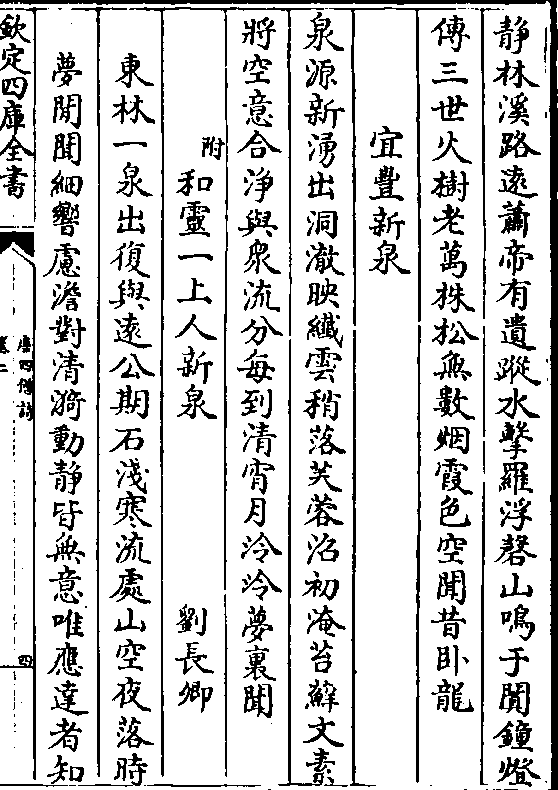 静林溪路遠蕭帝有遺蹤水擊羅浮磬山鳴于闐鐘燈
傳三世火樹老萬株松無數烟霞色空聞昔卧龍
宜豐新泉
泉源新湧出洞澈映纖雲稍落芙蓉沼初淹苔蘚文素
將空意合淨與衆流分每到清宵月泠泠夢裏聞
附和靈一上人新泉 劉長卿
東林一泉出復與遠公期石淺寒流處山空夜落時
夢閒聞細響慮澹對清漪動静皆無意唯應達者知
欽定四庫全書
唐四僧詩
卷二
四